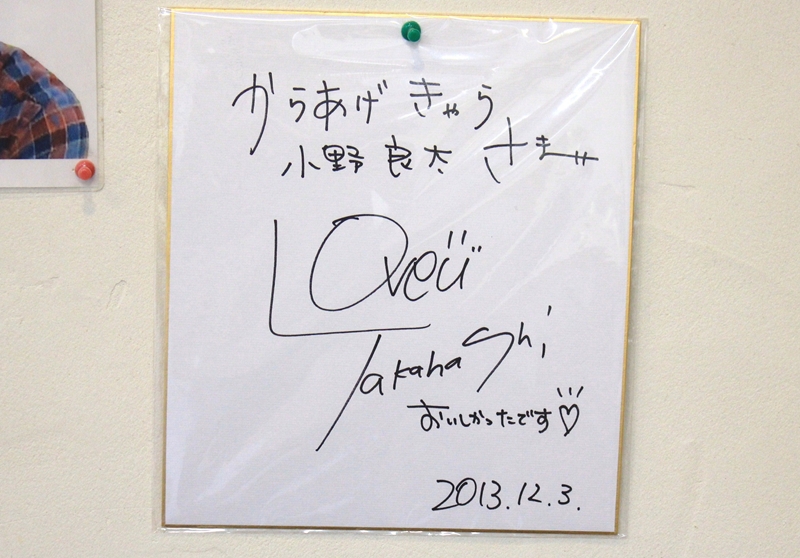 からあげ きゃら
小野 良太 さま
Loveü
Takahashi
おいしかったです♡
2013.12.3.